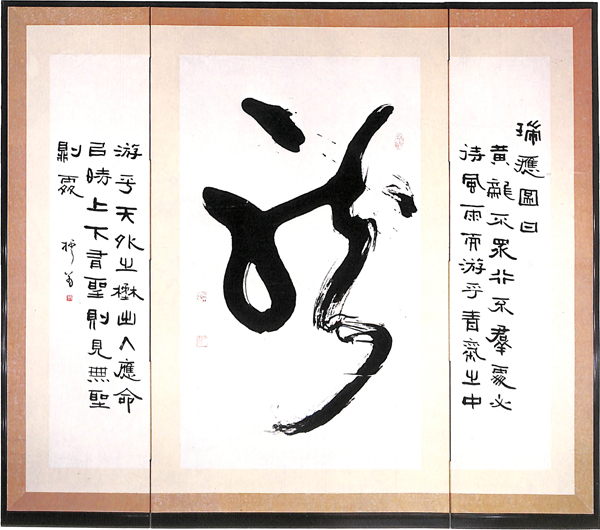 瑞應圖曰
黄龍不衆行不羣處必
待風雨而游乎青氣之中
龍
游乎天外之野出入應命
以時上下有聖則見無聖
則處